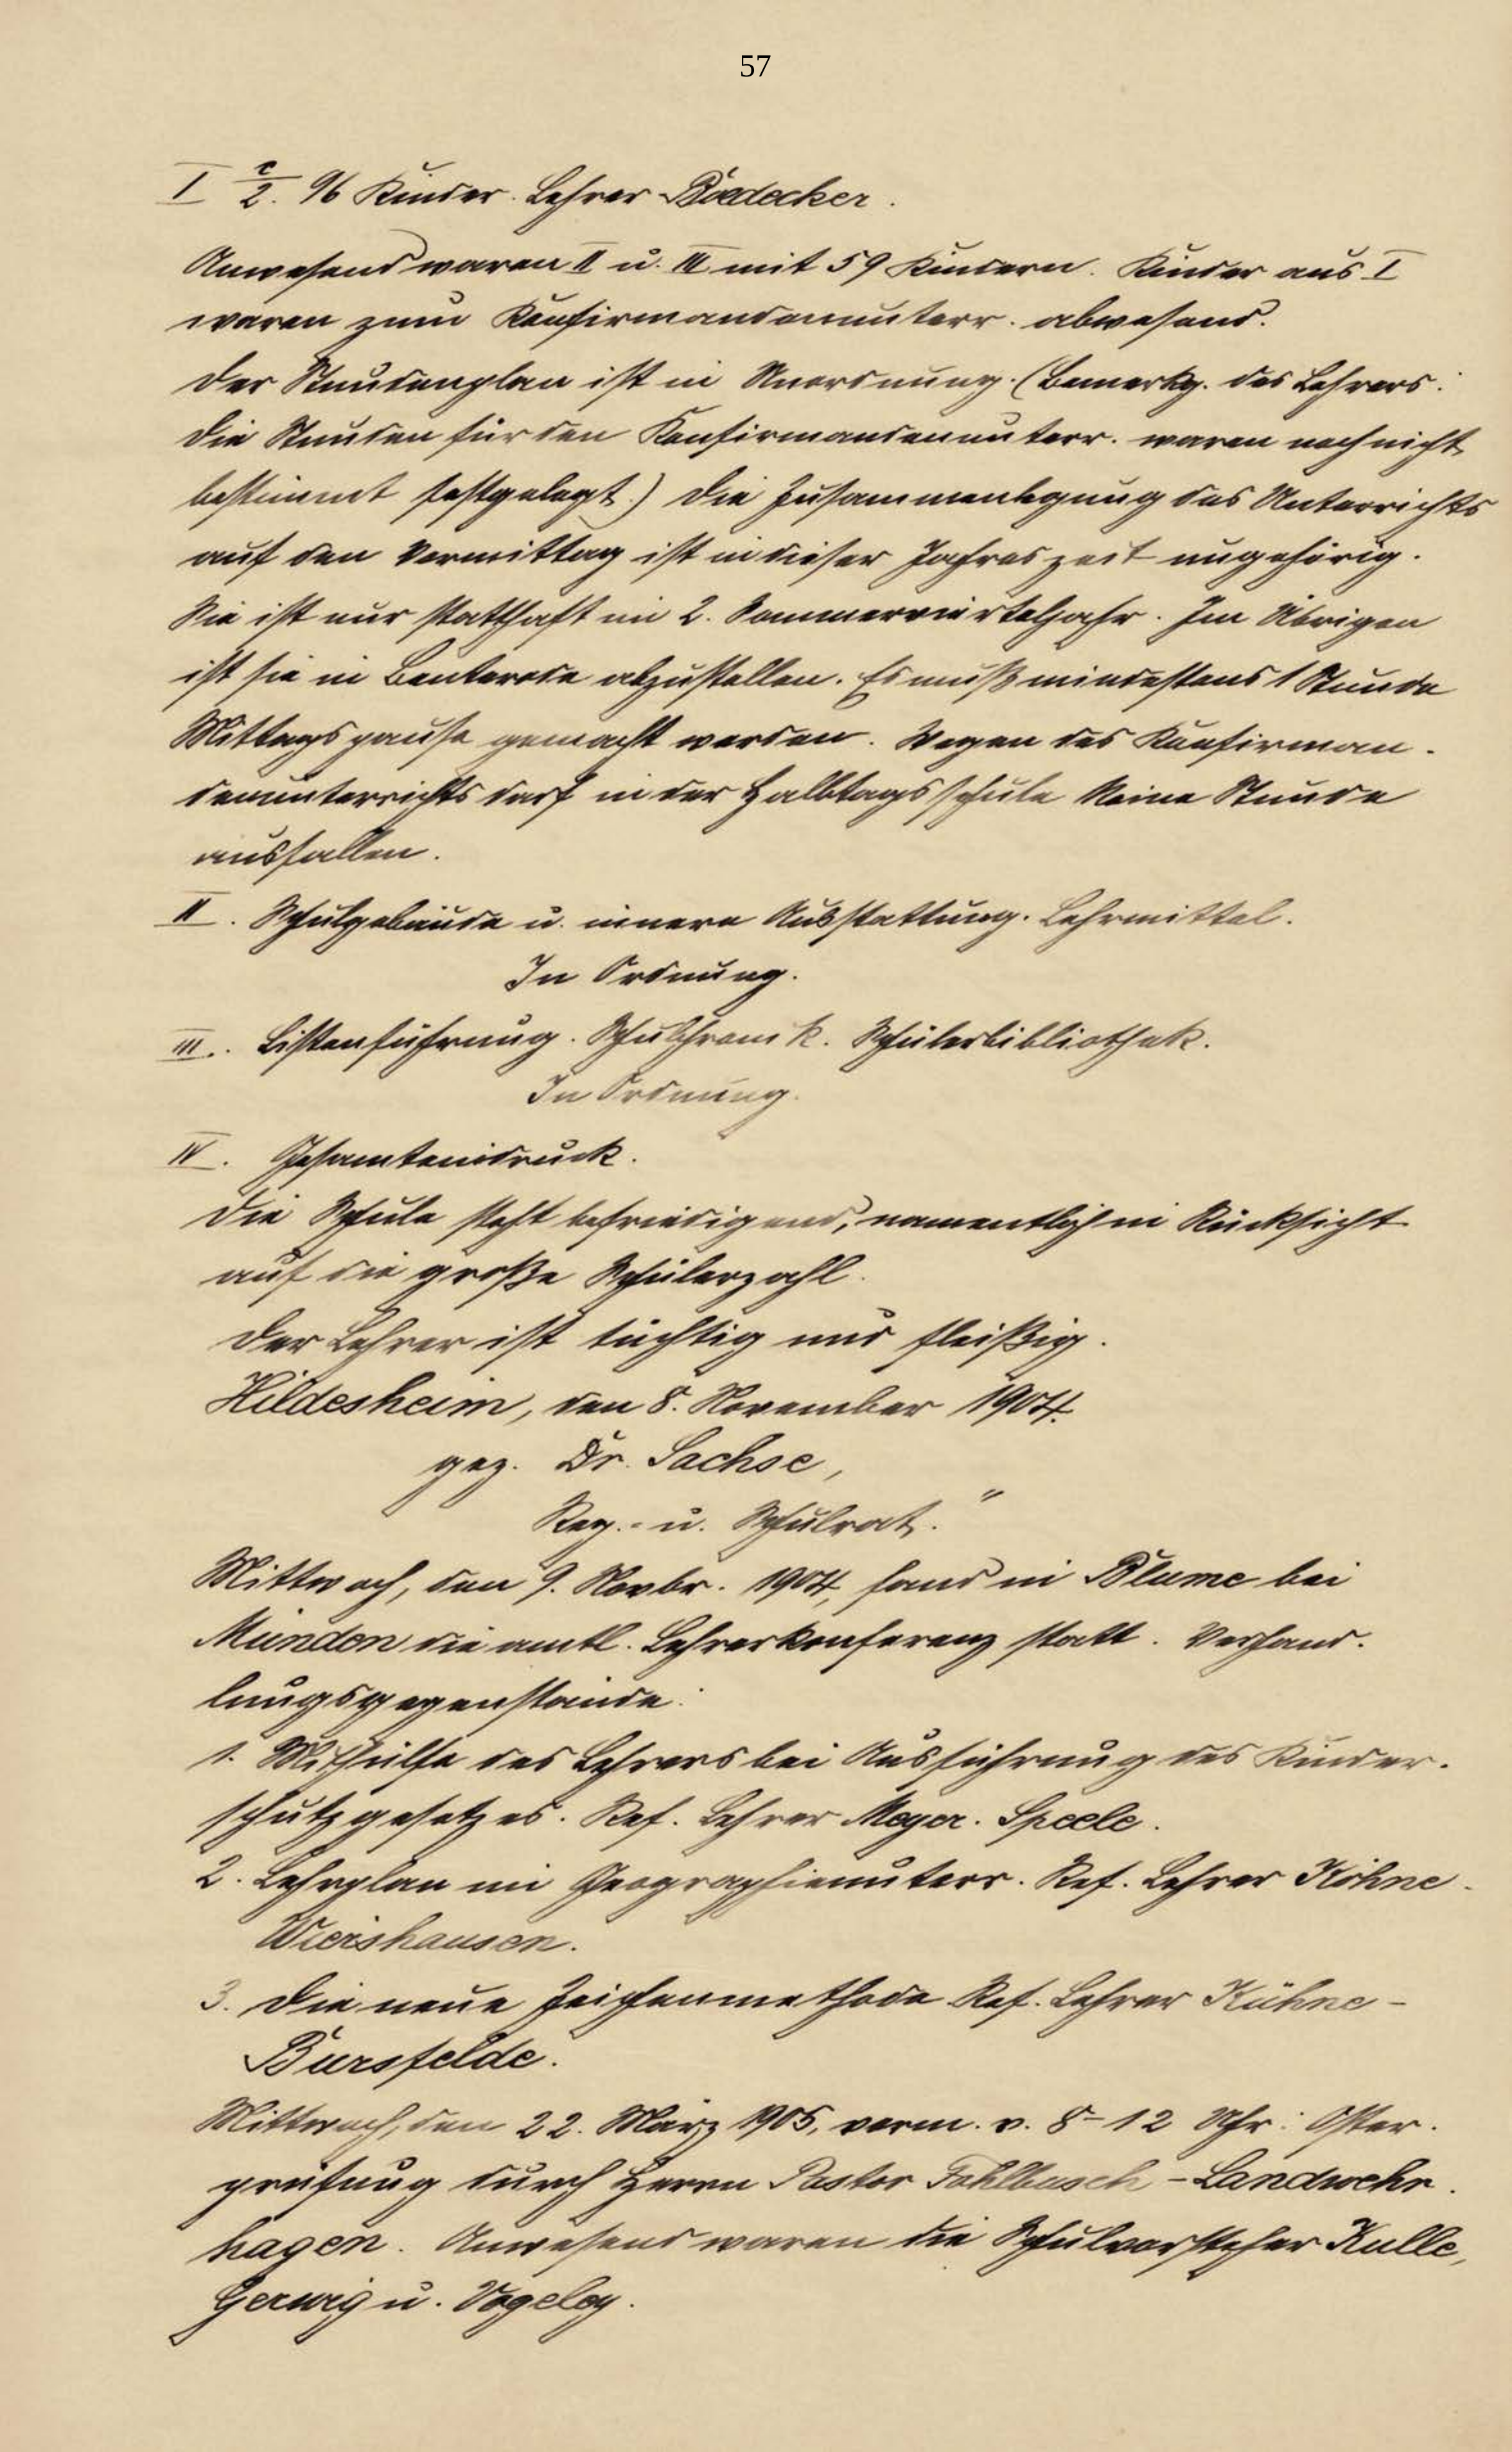 57
I c/2. 96 Kinder. Lehrer Boedecker.
Anwesend waren II u. III mit 59 Kindern. Kinder aus I
waren zum Konfirmandenunterr. abwesend.
Der Stundenplan ist in Unordnung. (Bemerkg. des Lehrers:
Die Stunden für den Konfirmandenunterr. waren noch nicht
bestimmt festgelegt.) Die Zusammenlegung des Unterrichts
auf den Vormittag ist in dieser Jahreszeit ungehörig.
Sie ist nur statthaft im 2. Sommervierteljahr. Im Übrigen
ist sie in Benterode abzustellen. Es muß mindestens 1 Stunde
Mittagspause gemacht werden. Wegen des Konfirman-
denunterrichts darf in der Halbtagsschule keine Stunde
ausfallen.
II. Schulgebäude u. innere Ausstattung. Lehrmittel.
In Ordnung.
III. Listenführung. Schulchronik. Schülerbibliothek.
In Ordnung.
IV. Gesamteindruck.
Die Schule steht befriedigend, namentlich in Rücksicht
auf die große Schülerzahl.
Der Lehrer ist tüchtig und fleißig.
Hildesheim, den 8. November 1904.
gez. Dr. Sachse,
Reg.- u. Schulrat."
Mittwoch, den 9. Novbr. 1904, fand in Blume bei
Münden die amtl. Lehrerkonferenz statt. Verhand-
lungsgegenstände:
1. Mithülfe des Lehrers bei Ausführung des Kinder-
schutzgesetzes. Ref. Lehrer Meyer-Speele.
2. Lehrplan im Geographieunterr. Ref. Lehrer Köhne-
Wiershausen.
3. Die neue Zeichenmethode Ref. Lehrer Kühne-
Bursfelde.
Mittwoch, den 22. März 1905, vorm. v. 8-12 Uhr: Oster-
prüfung durch Herrn Pastor Fahlbusch-Landwehr-
hagen. Anwesend waren die Schulvorsteher Kulle,
Gerwig u. Vogeley.